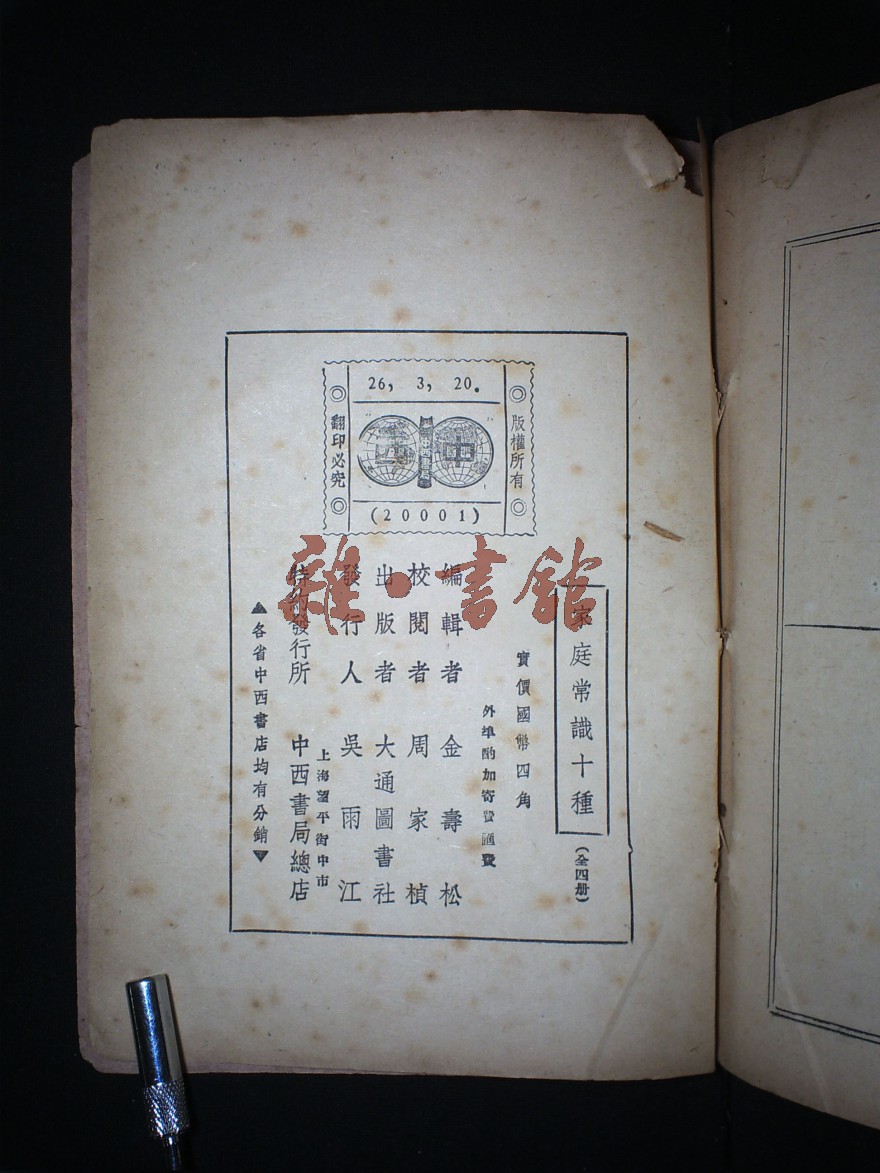 26, 3, 20.
版權所有
翻印必究
(20001)
家庭常識十種
(全四册)
實價國幣四角
外埠酌加寄費匯費
編輯者 金壽松
校閱者 周家楨
出版者 大通圖書社
發行人 吳雨江
上海望平街中市
特約發行所 中西書局總店
▲各省中西書店均有分銷▼
雜·書館